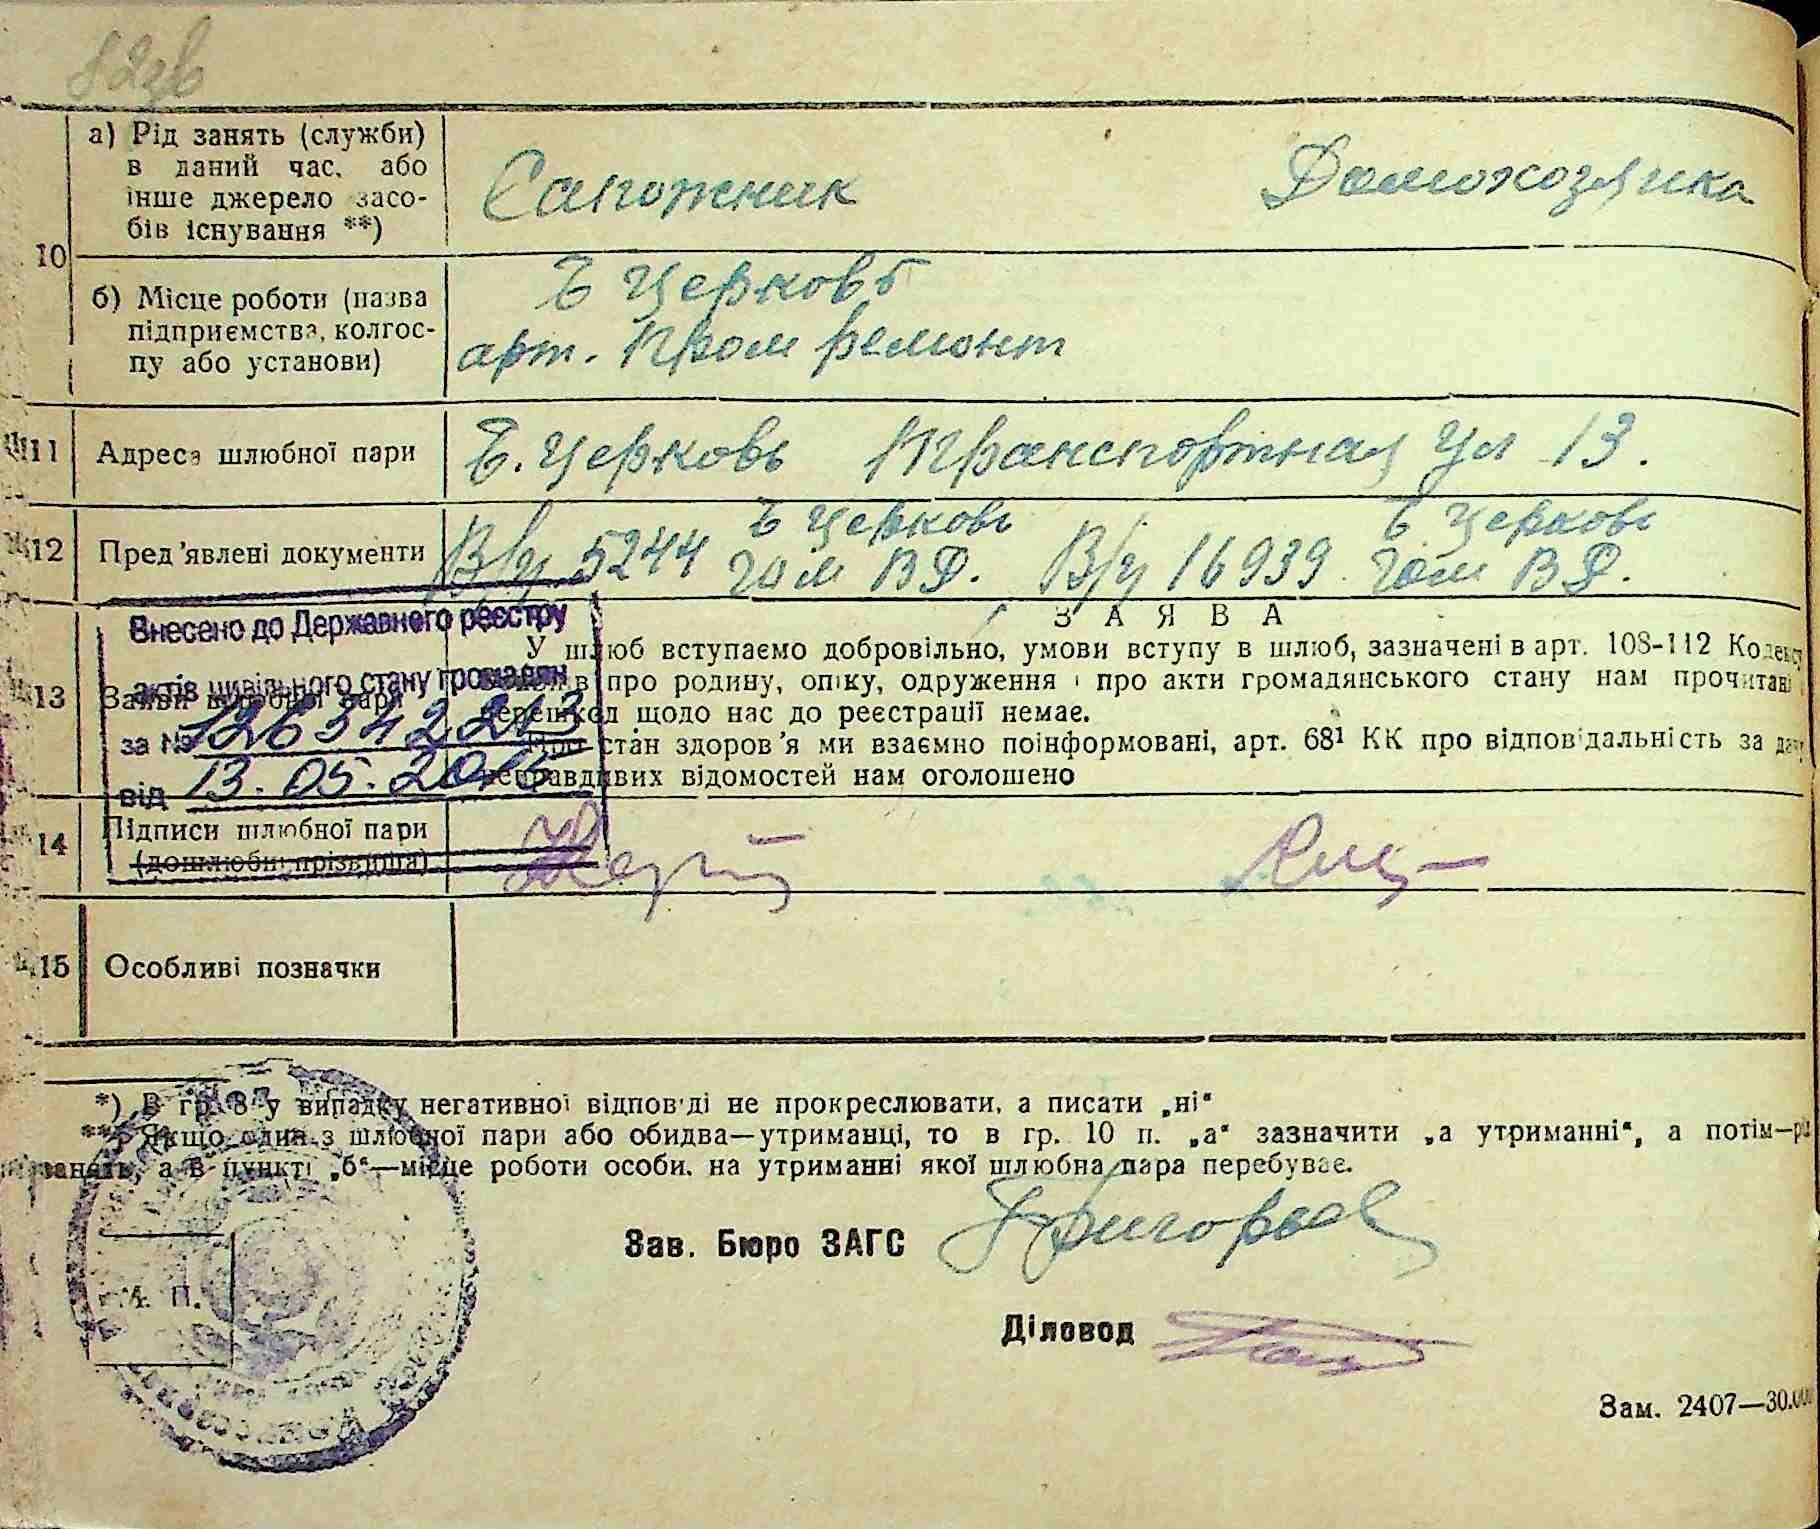 82зв
10
а) Рід занять (служби) в даний час, або інше джерело засо-бів існування **)
Сапожник Домохозяйка
б) Місце роботи (назва підприємства, колгос-пу або установи)
Б Церковь
арт. Пром ремонт
11 Адреса шлюбної пари Б. Церковь Транспортная ул 13.
12 Пред'явлені документи В/у 5244 Б Церковь В/у 16939 Б Церковь
13 Заяви шлюбної пари
ЗАЯВА
У шлюб вступаємо добровільно, умови вступу в шлюб, зазначені в арт. 108-112 Кодексу
про родину, опіку, одруження і про акти громадянського стану нам прочитані
перешкод щодо нас до реєстрації немає.
Про стан здоров'я ми взаємно поінформовані, арт. 68¹ КК про відповідальність за дачу
неправдивих відомостей нам оголошено
Внесено до Державного реєстру
актів цивільного стану громадян
за №
від 13.05.2015
14 Підписи шлюбної пари
(дошлюбні прізвища)
15 Особливі позначки
*) В гр. 8 у випадку негативної відповіді не прокреслювати, а писати „ні“
**) Якщо один з шлюбної пари або обидва—утриманці, то в гр. 10 п. „а“ зазначити „а утриманні“, а потім—рід
занять, а в пункті „б“—місце роботи особи, на утриманні якої шлюбна пара перебуває.
Зав. Бюро ЗАГС
М. П.
Діловод
Зам. 2407—30.000